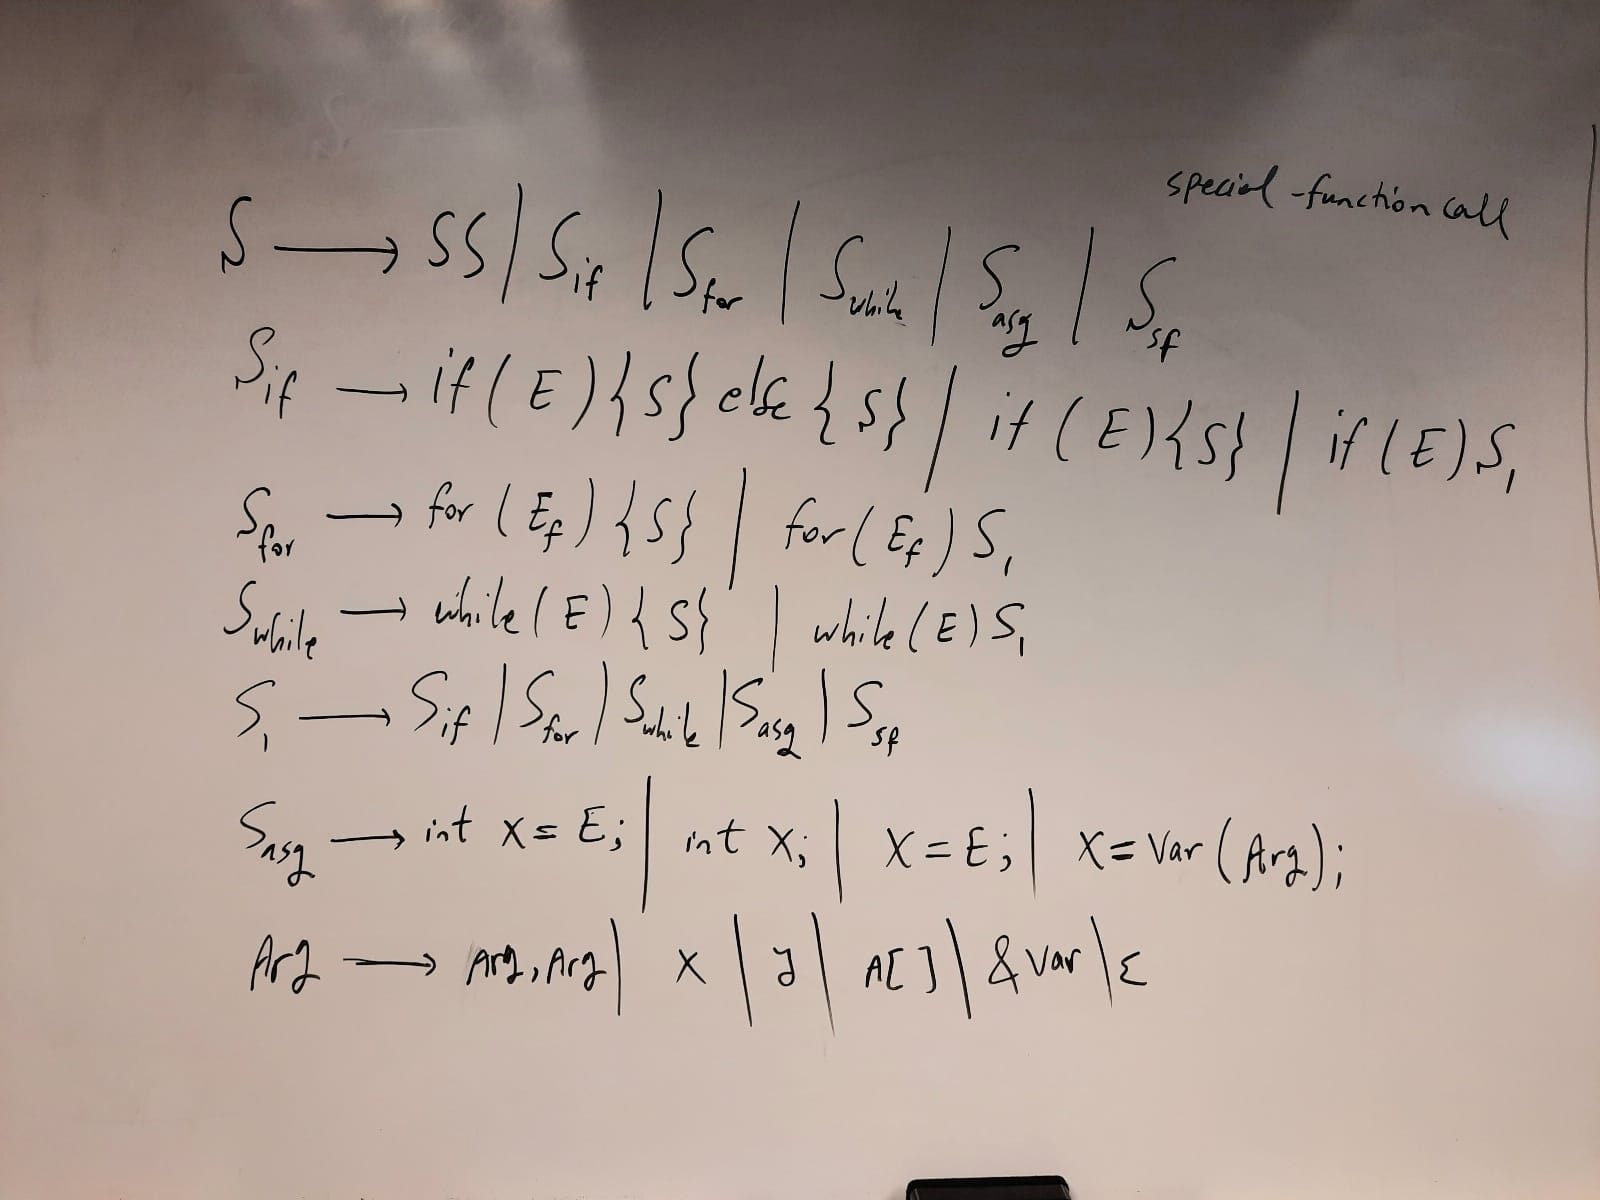 special-function call
S → SS | S_if | S_for | S_while | S_asg | S_sf
S_if → if(E){S}else{S} | if(E){S} | if(E)S_1
S_for → for(E_f){S} | for(E_f)S_1
S_while → while(E){S} | while(E)S_1
S_1 → S_if | S_for | S_while | S_asg | S_sf
S_asg → int X = E; | int X; | X = E; | X = Var(Arg);
Arg → Arg, Arg | X | y | A[] | &Var | ε